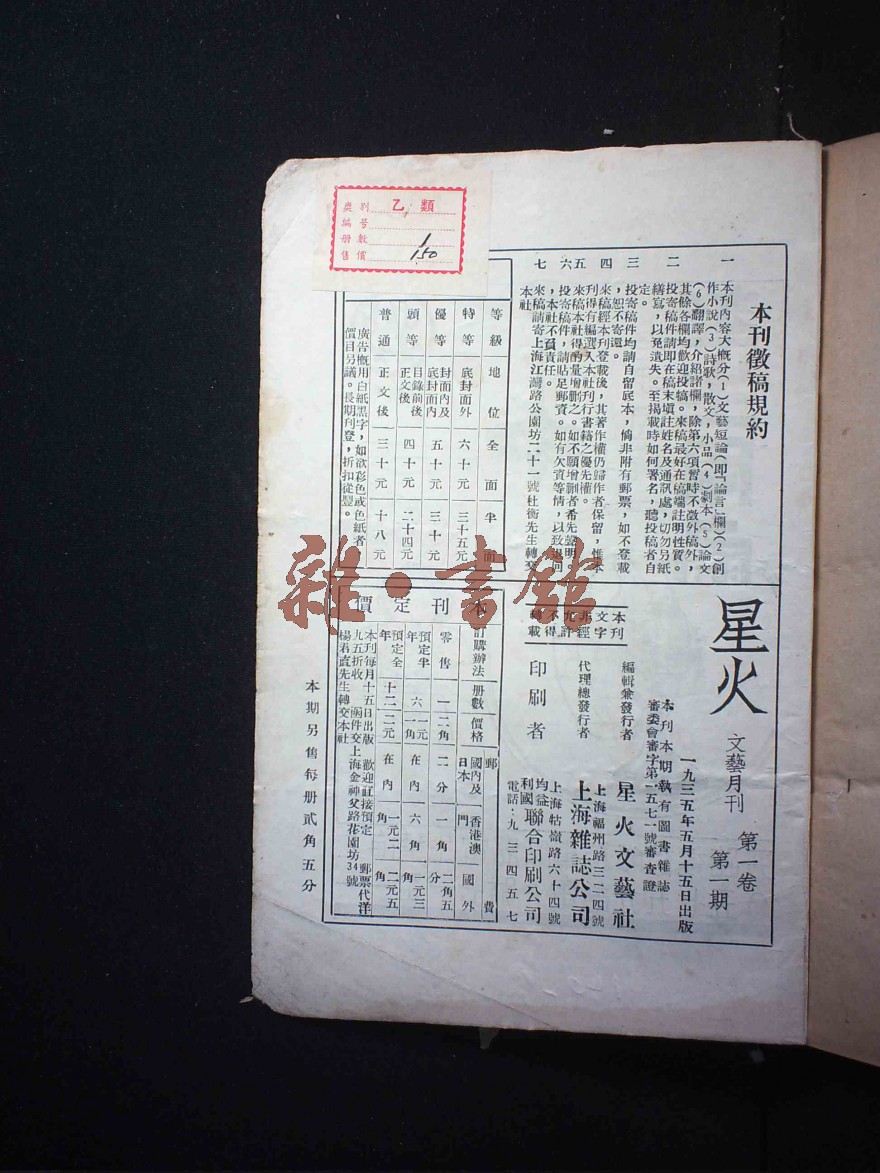 乙類
類別
編號
册數 1
售價 1.50
本刊徵稿規約
一 本刊內容大概分(1)文藝短論(即「論言」欄)(2)創
作小說(3)詩歌,散文,小品(4)劇本(5)論文
(6)翻譯,介紹諸欄,除第六項暫時不徵外稿外,
其餘各欄均歡迎投稿。來稿最好在稿端註明性質。
二 投寄稿件請即在稿末塡註姓名及通訊處,切勿另紙
繕寫,以免遺失。至揭載時如何署名,聽投稿者自
定。
三 投寄稿件均請自留底本,倘非附有郵票,如不登載
,恕不寄還。
四 來稿經本刊登載後,其著作權仍歸作者保留,惟本
刊得有編選入本社刊行書籍之優先權。
五 來稿本社得酌量增删之。如不願增删者希先聲明。
六 投寄稿件,請貼足郵資。如有欠資等情,以致退回
,本社不負責任。
七 來稿請寄上海江灣路公園坊二十一號杜衡先生轉交
本社
等級 地位 全面 半面
特等 底封面外 六十元 三十五元
優等 封面內及底封面內 五十元 三十元
頭等 目錄前後正文後 四十元 二十四元
普通 正文後 三十元 十八元
廣告概用白紙黑字,如欲彩色或色紙者
價目另議。長期刊登,折扣從豐。
星火
文藝月刊 第一卷
第一期
一九三五年五月十五日出版
本刊本期執有圖書雜誌
審委會審字第一五七一號審查證
編輯兼發行者 星火文藝社
上海福州路三二四號
代理總發行者 上海雜誌公司
上海牯嶺路六十四號
印刷者 均益利國聯合印刷公司
電話:九三四五七
本刊文字非經允許不得轉載
本刊定價
訂購辦法 册數 價格 郵費
國內及日本 香港澳門 國外
零售 一 二角 二分 一角 二角五分
預定半年 六 一元一角 在內 六角 一元三角
預定全年 十二 二元 在內 一元二角 二元五角
本刊每月十五日出版 歡迎訂接預定 郵票代洋
九五折收 函件交上海金神父路花園坊34號
楊君直先生轉交本社
本期另售每册貳角五分
雜·書館